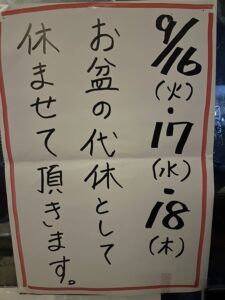 9/16(火)・17(水)・18(木)
お盆の代休として
休ませて頂きます。